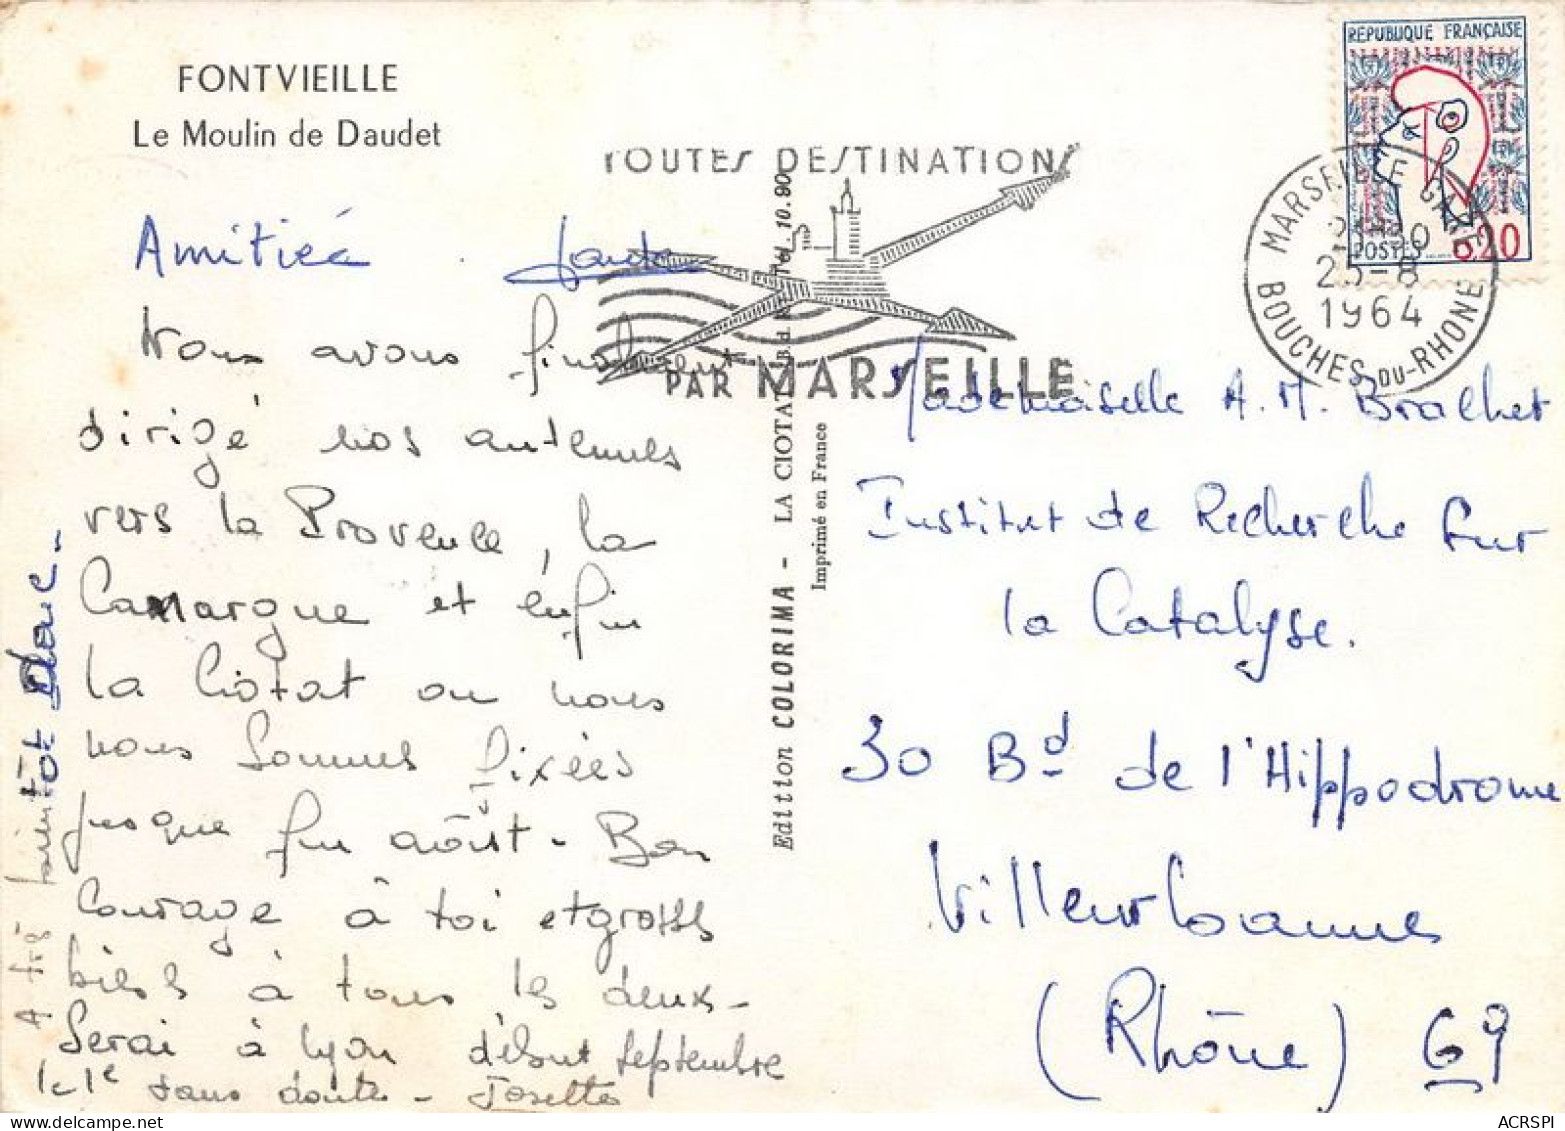 FONTVIEILLE
Le Moulin de Daudet
Amitiés
Nous avons finalement
dirigé nos antennes
vers la Provence, la
Camargue et enfin
la Ciotat ou nous
nous sommes fixées
jusque fin août - Bon
Courage à toi et grosses
bises à tous les deux -
Serai à Lyon début septembre
le 1e sans doute - Josette
A très bientôt donc -
TOUTES DESTINATIONS
PAR MARSEILLE
Edition COLORIMA - LA CIOTAT
10.90
Imprimé en France
REPUBLIQUE FRANÇAISE
POSTES
0.20
MARSEILLE GARE
25-8
1964
BOUCHES-DU-RHONE
Mademoiselle A. M. Bralhet
Institut de Recherche sur
la Catalyse.
30 Bd de l'Hippodrome
Villeurbanne
(Rhône) 69
ACRSPI